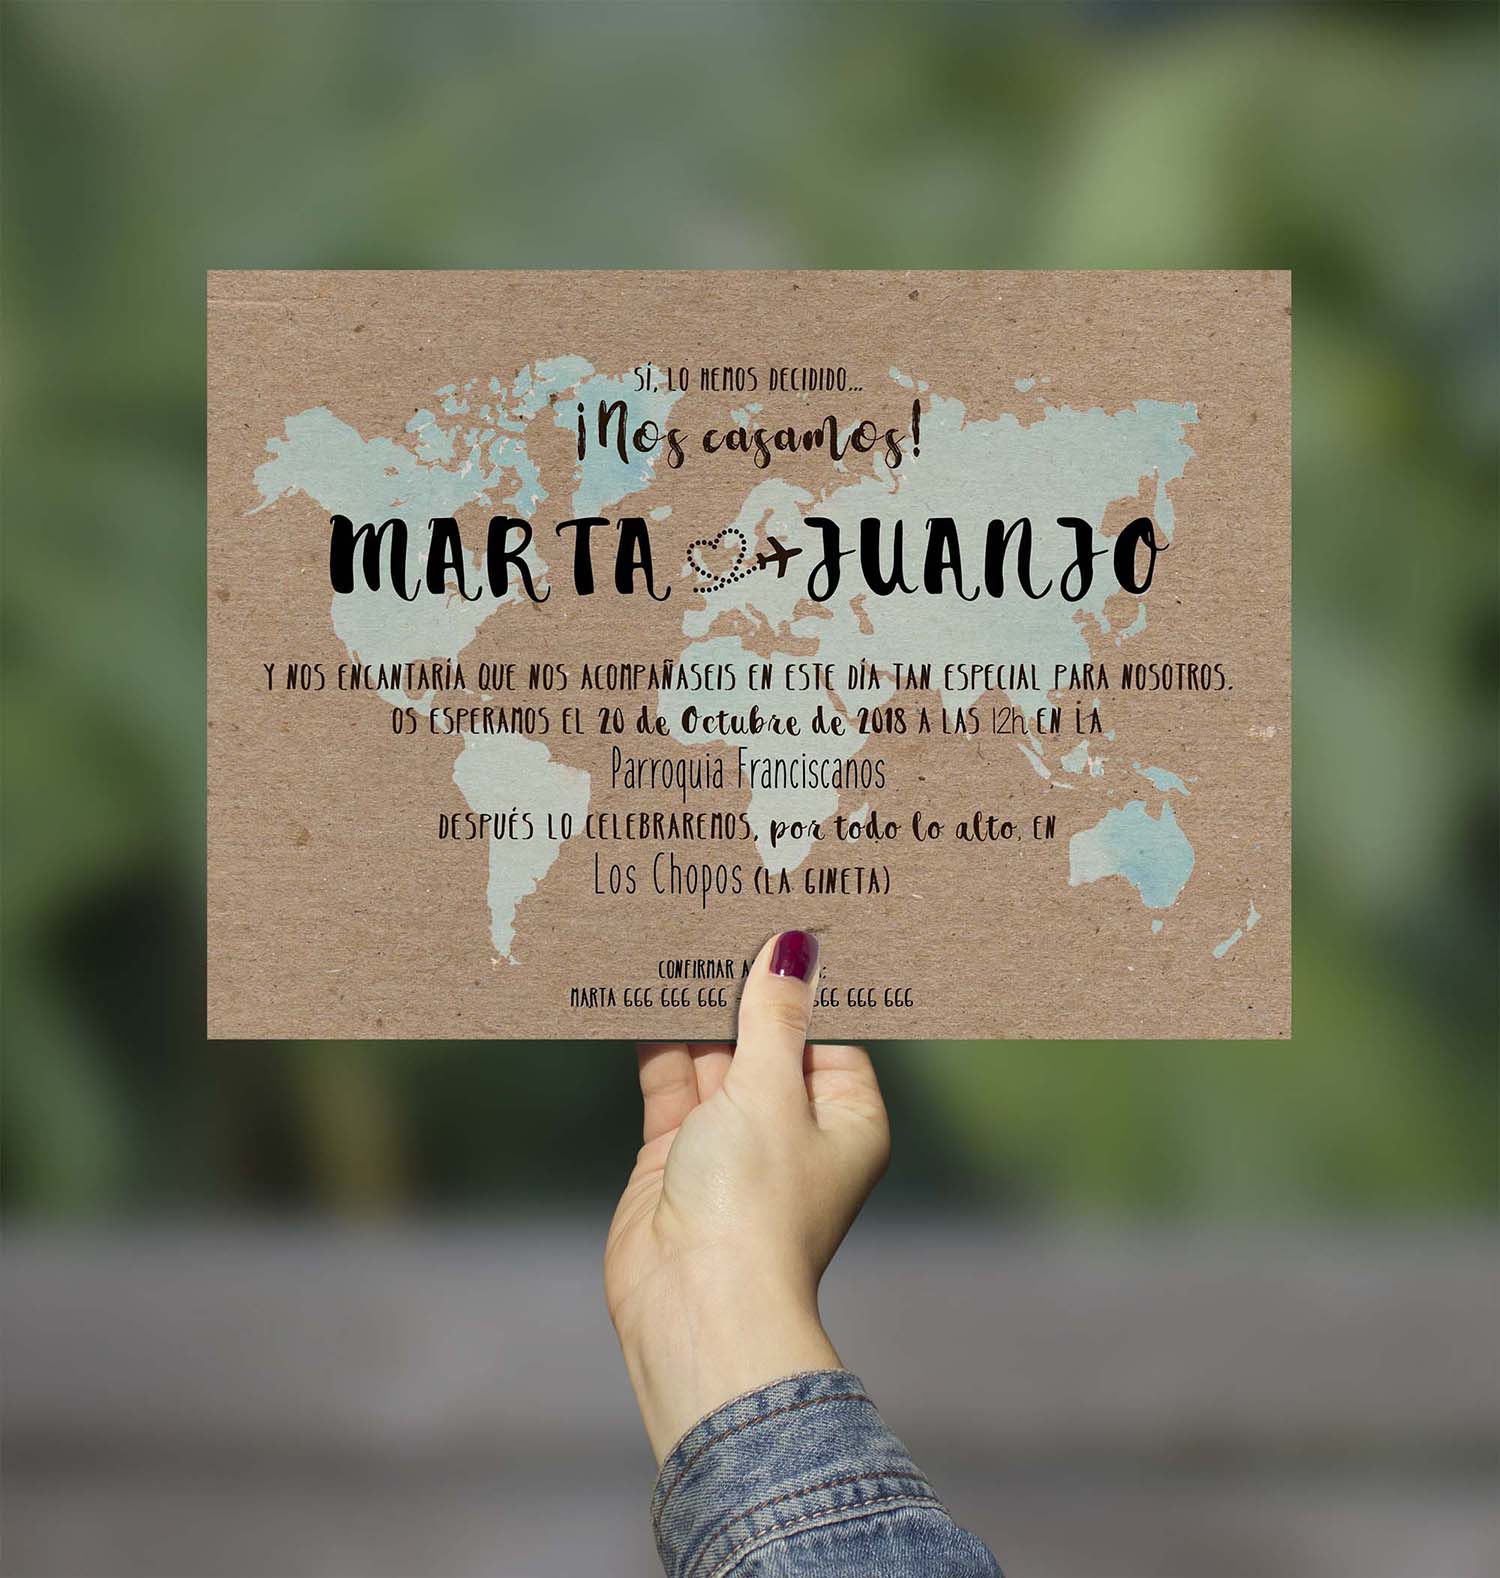 SÍ, LO HEMOS DECIDIDO...
¡Nos casamos!
MARTA JUANJO
Y NOS ENCANTARÍA QUE NOS ACOMPAÑASEIS EN ESTE DÍA TAN ESPECIAL PARA NOSOTROS.
OS ESPERAMOS EL 20 de Octubre de 2018 A LAS 12h EN LA
Parroquia Franciscanos
DESPUÉS LO CELEBRAREMOS, por todo lo alto, EN
Los Chopos (LA GINETA)
CONFIRMAR
MARTA 666 666 666 666 666